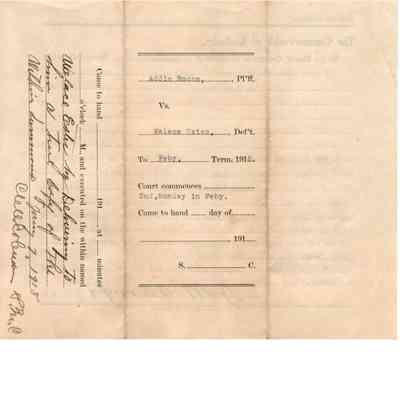 Addie Bacon, Pl'ff.
Vs.
Walace Estes, Def't.
To Feby. Term, 1918.
Court commences
2nd, Monday in Feby.
Came to hand day of
191
S. C.
Came to hand 191 at minutes
o'clock M., and executed on the within named
Walace Estes by Delivering to
him a true Copy of the
Within summons Jany 7, 1918